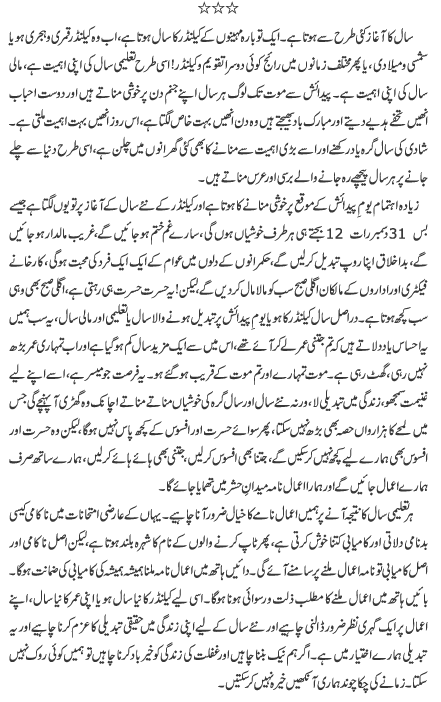 ☆☆☆
سال کا آغاز کئی طرح سے ہوتا ہے۔ ایک تو بارہ مہینوں کے کیلنڈر کا سال ہوتا ہے، اب وہ کیلنڈر قمری و ہجری ہو یا
شمسی و میلادی، یا پھر مختلف زمانوں میں رائج کوئی دوسرا تقویم و کیلنڈر! اسی طرح تعلیمی سال کی اپنی اہمیت ہے، مالی
سال کی اپنی اہمیت ہے۔ پیدائش سے موت تک لوگ ہر سال اپنے جنم دن پر خوشی مناتے ہیں اور دوست احباب
انھیں تحفے ہدیے دیتے اور مبارک باد بھیجتے ہیں وہ دن انھیں بہت خاص لگتا ہے، اس روز انھیں بہت اہمیت ملتی ہے۔
شادی کی سال گرہ یاد رکھنے اور اسے بڑی اہمیت سے منانے کا بھی کئی گھرانوں میں چلن ہے، اسی طرح دنیا سے چلے
جانے پر ہر سال پیچھے رہ جانے والے برسی اور عرس مناتے ہیں۔
زیادہ اہتمام یومِ پیدائش کے موقع پر خوشی منانے کا ہوتا ہے اور کیلنڈر کے نئے سال کے آغاز پر تو یوں لگتا ہے جیسے
بس 31 دسمبر رات 12 بجتے ہی ہر طرف خوشیاں ہوں گی، سارے غم ختم ہو جائیں گے، غریب مالدار ہو جائیں
گے، بداخلاق اپنا روپ تبدیل کر لیں گے، حکمرانوں کے دلوں میں عوام کے ایک ایک فرد کی محبت ہو گی، کارخانے
فیکٹری اور اداروں کے مالکان اگلی صبح سب کو مالا مال کر دیں گے، لیکن! یہ حسرت حسرت ہی رہتی ہے، اگلی صبح بھی وہی
سب کچھ ہوتا ہے۔ دراصل سال کیلنڈر کا ہو یا یومِ پیدائش پر تبدیل ہونے والا سال یا تعلیمی اور مالی سال، یہ سب ہمیں
یہ احساس یاد دلاتے ہیں کہ تم جتنی عمر لے کر آئے تھے، اس میں سے ایک مزید سال کم ہو گیا ہے اور اب تمہاری عمر بڑھ
نہیں رہی، گھٹ رہی ہے۔ موت تمہارے اور تم موت کے قریب ہو گئے ہو۔ یہ فرصت جو میسر ہے، اسے اپنے لیے
غنیمت سمجھو، زندگی میں تبدیلی لا، ورنہ نئے سال اور سال گرہ کی خوشیاں مناتے مناتے اچانک وہ گھڑی آ پہنچے گی جس
میں لمحے کا ہزارواں حصہ بھی بڑھ نہیں سکتا، پھر سوائے حسرت اور افسوس کے کچھ پاس نہیں ہوگا، لیکن وہ حسرت اور
افسوس بھی ہمارے لیے کچھ نہیں کر سکیں گے، جتنا بھی افسوس کر لیں، جتنی بھی ہائے ہائے کر لیں، ہمارے ساتھ صرف
ہمارے اعمال جائیں گے اور ہمارا اعمال نامہ میدانِ حشر میں تھمایا جائے گا۔
ہر تعلیمی سال کا نتیجہ آنے پر ہمیں اعمال نامے کا خیال ضرور آنا چاہیے۔ یہاں کے عارضی امتحانات میں ناکامی کیسی
بدنامی دلاتی اور کامیابی کتنا خوش کرتی ہے، پھر ٹاپ کرنے والوں کے نام کا شہرہ بلند ہوتا ہے، لیکن اصل ناکامی اور
اصل کامیابی تو نامہ اعمال ملنے پر سامنے آئے گی۔ دائیں ہاتھ میں اعمال نامہ ملنا ہمیشہ ہمیشہ کی کامیابی کی ضمانت ہوگا۔
بائیں ہاتھ میں اعمال ملنے کا مطلب ذلت و رسوائی ہونا ہوگا۔ اسی لیے کیلنڈر کا نیا سال ہو یا اپنی عمر کا نیا سال، اپنے
اعمال پر ایک گہری نظر ضرور ڈالنی چاہیے اور نئے سال کے لیے اپنی زندگی میں حقیقی تبدیلی کا عزم کرنا چاہیے اور یہ
تبدیلی ہمارے اختیار میں ہے۔ اگر ہم نیک بننا چاہیں اور غفلت کی زندگی کو خیر باد کرنا چاہیں تو ہمیں کوئی روک نہیں
سکتا۔ زمانے کی چکا چوند ہماری آنکھیں خیرہ نہیں کر سکتیں۔